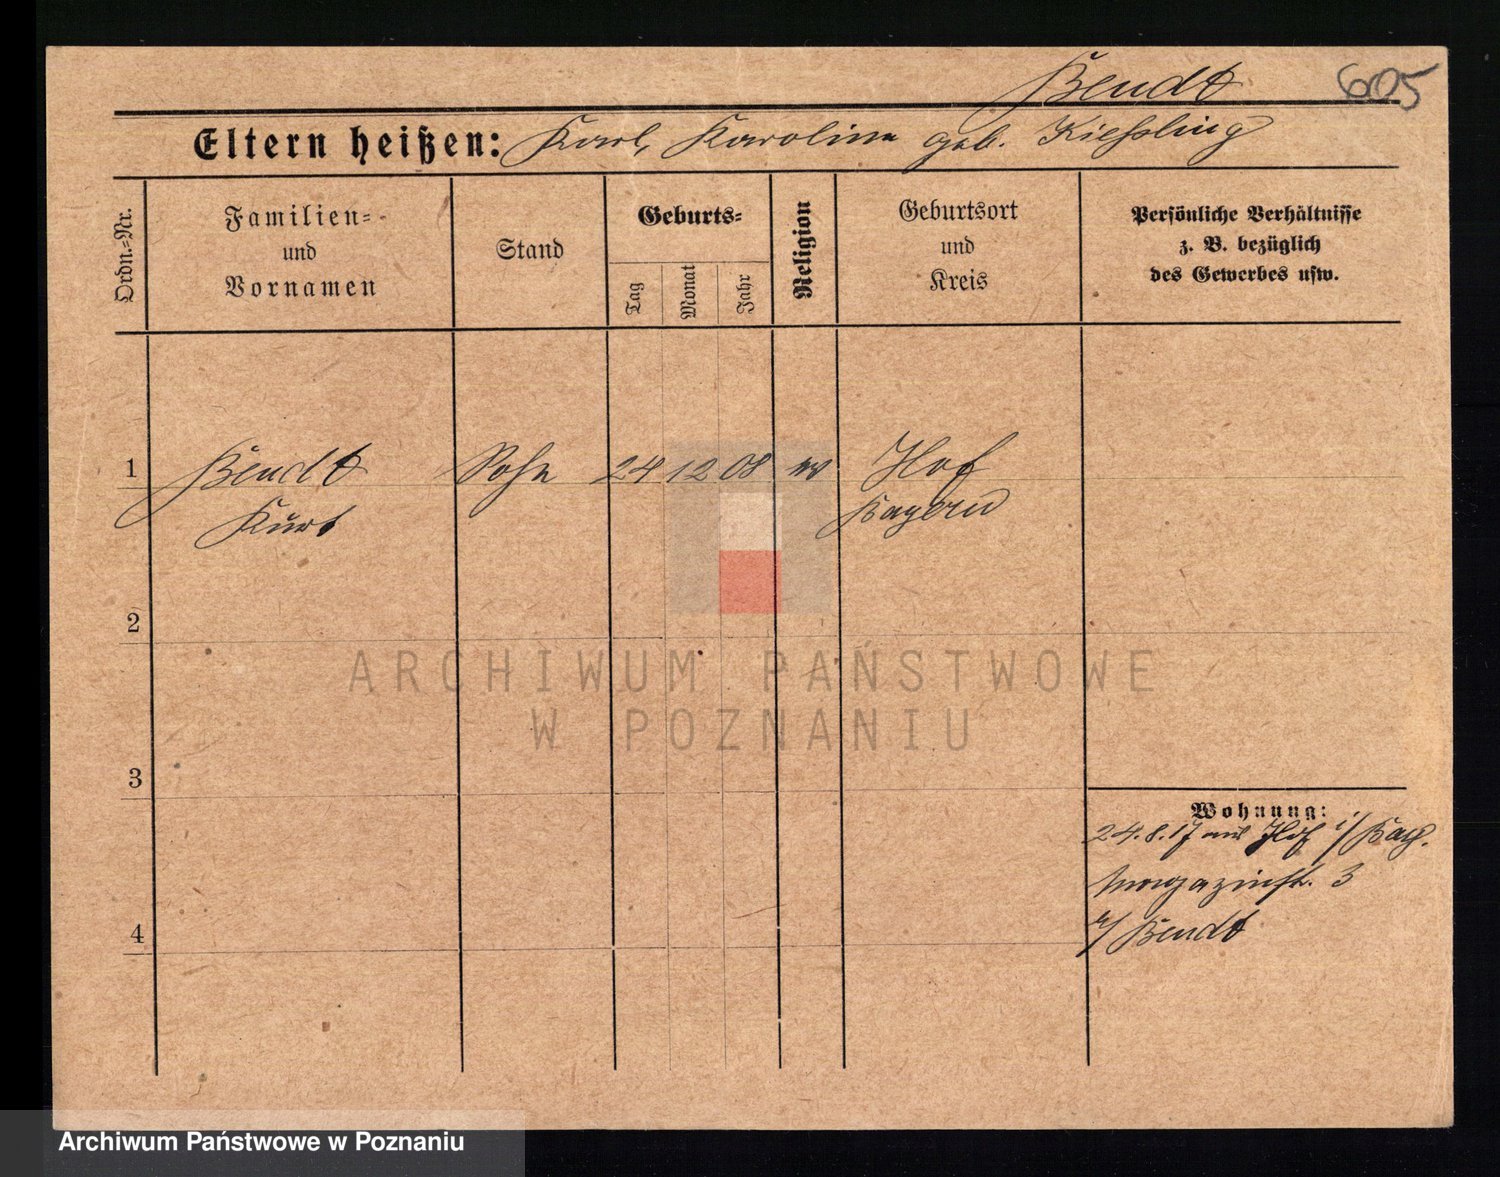 Bendt
605
Eltern heißen: Karl, Karoline geb. Kießling
Ordn.=Nr.
Familien=
und
Vornamen
Stand
Geburts=
Tag
Monat
Jahr
Religion
Geburtsort
und
Kreis
Persönliche Verhältnisse
z. B. bezüglich
des Gewerbes usw.
1 Bendt Sohn 24 12 08 Hof
Kurt Bayern
2
3
4
Wohnung:
24.8.17 aus Hof i/Bay.
Magazinstr. 3
b/ Bendt
ARCHIWUM PAŃSTWOWE
W POZNANIU
Archiwum Państwowe w Poznaniu